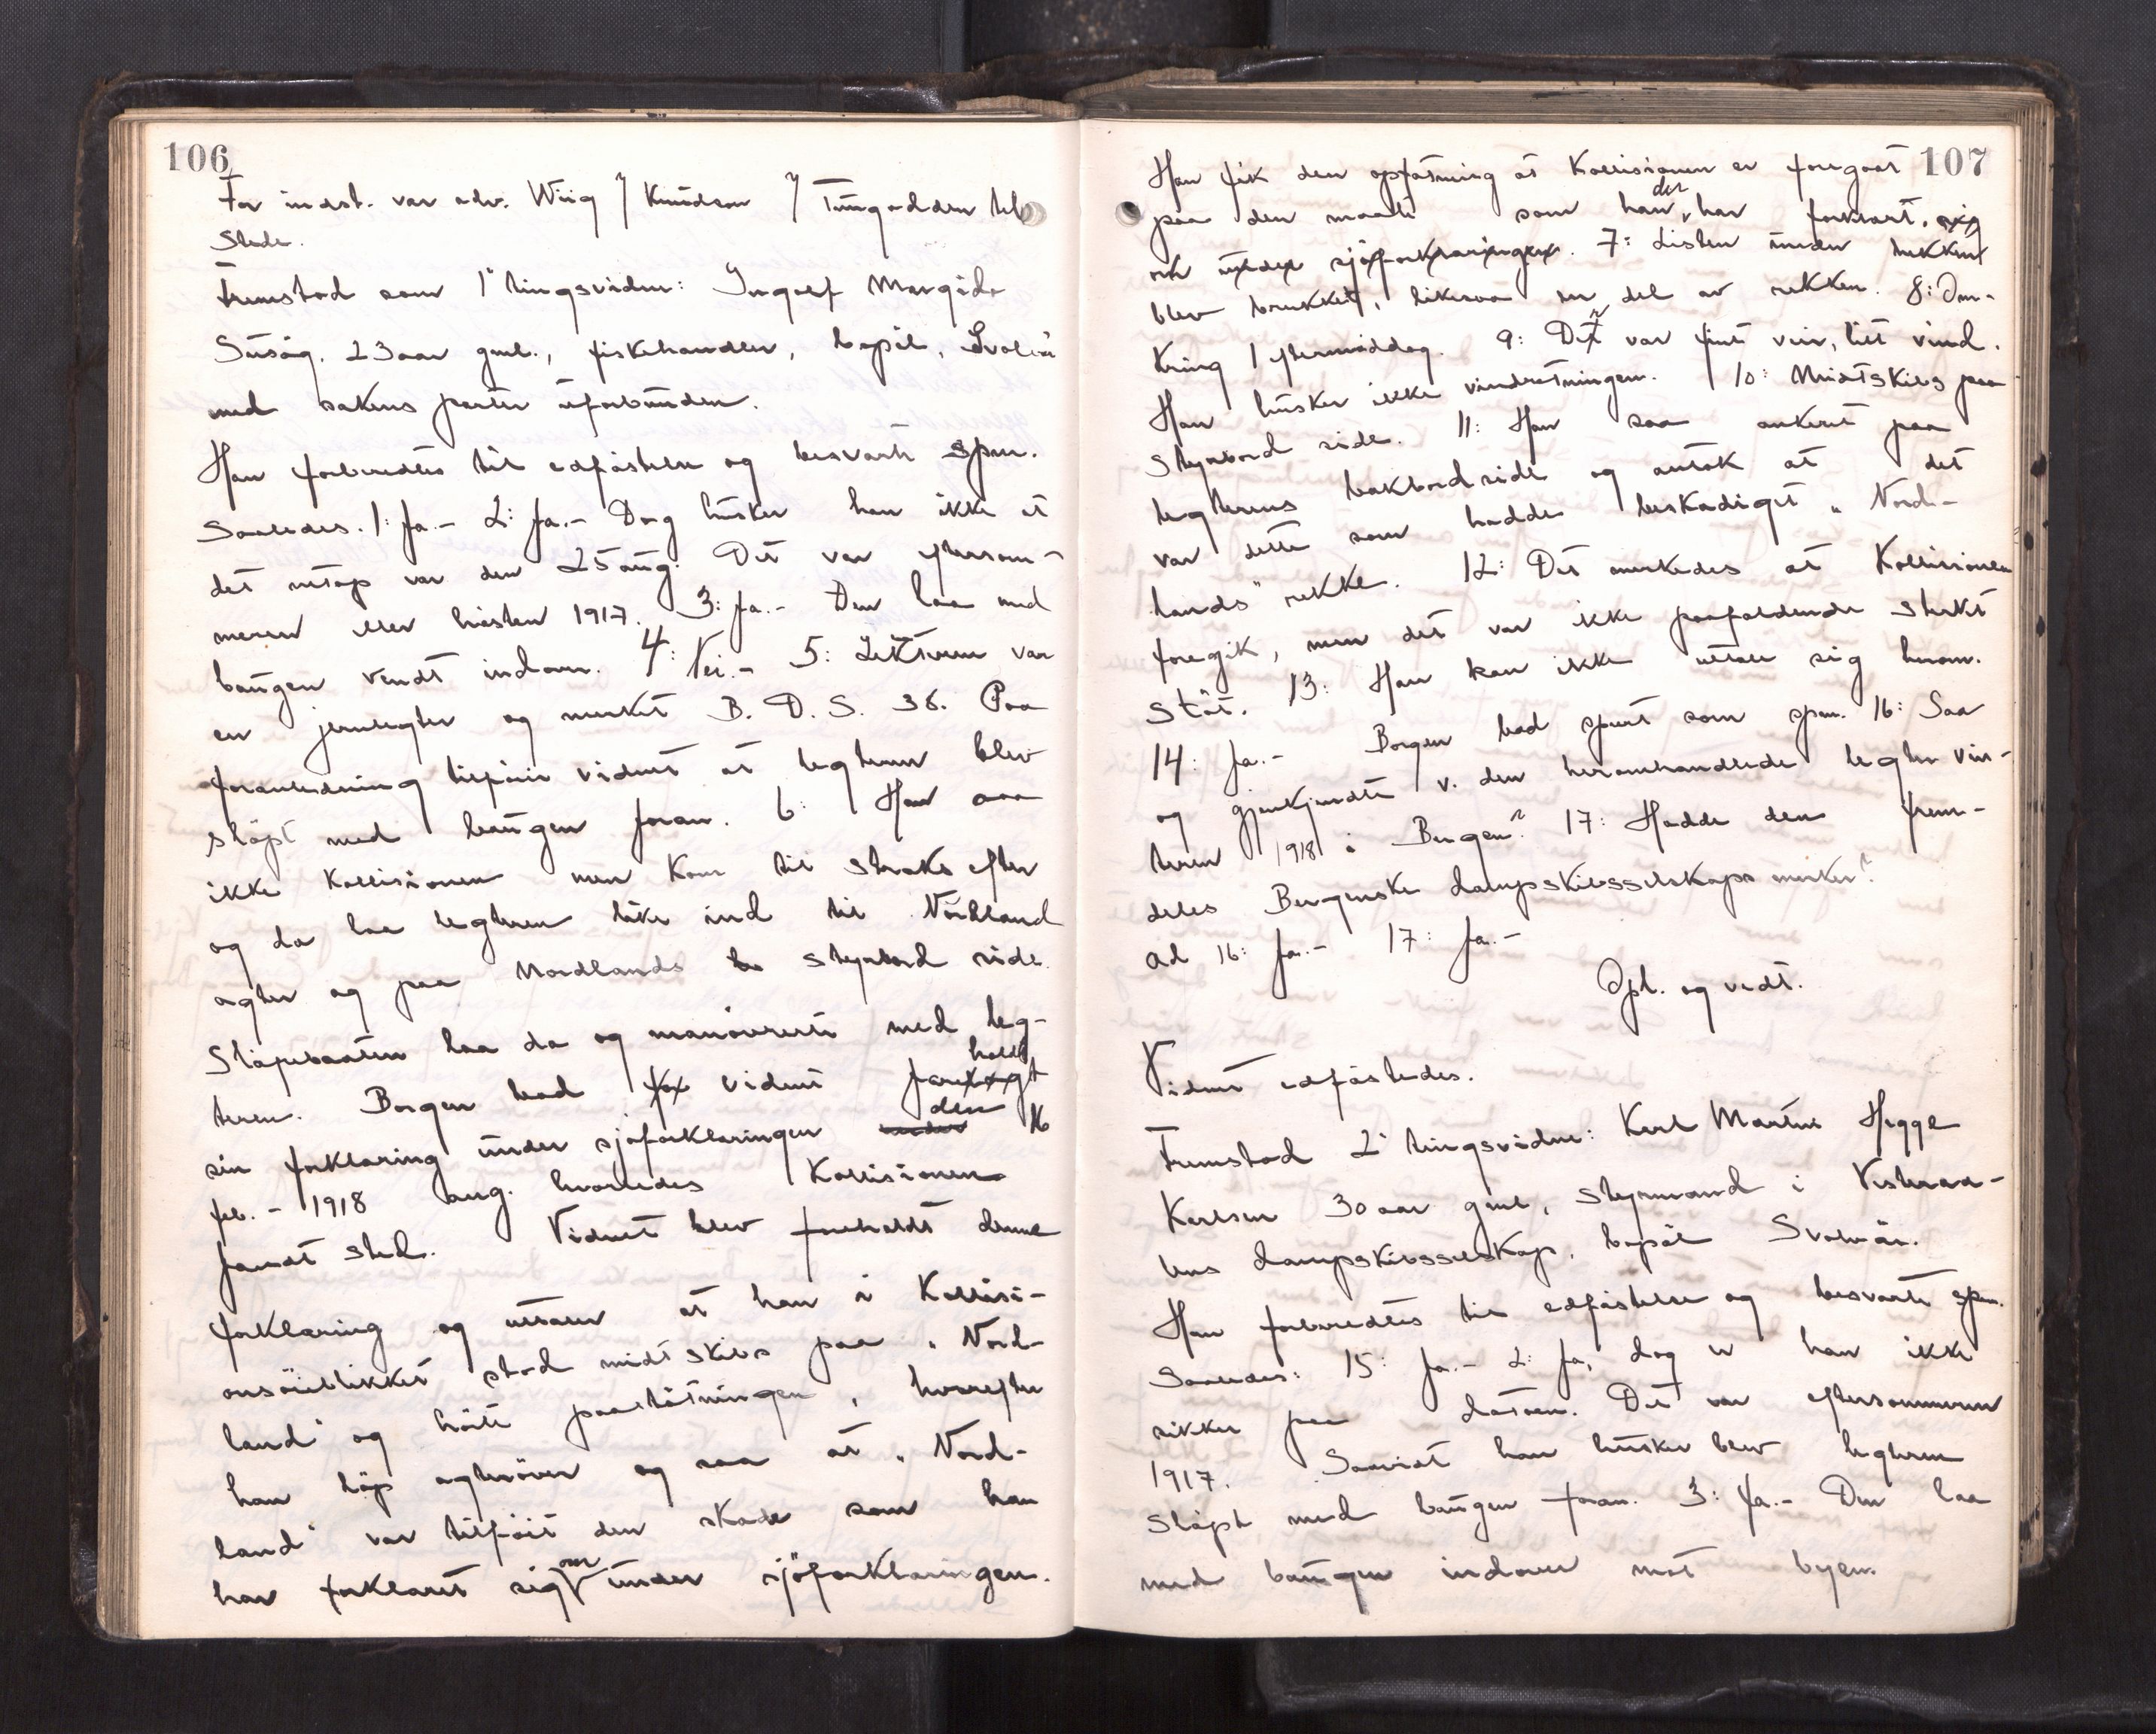 106
For indst. var adv. Wiig v/ Knudsen v/ Tungodden til
Stede.
Fremstod som 1' tingsvidne: Ingolf Margido
Susåg. 23 aar gml., fiskehandler, bopæl, Svolvær
med sakens parter uforbunden.
Han forberedtes til edfæstelse og besvarte spm.
saaledes. 1: Ja.- 2: Ja.- Dog husker han ikke at
det netop var den 25 aug. Det var eftersom-
meren eller høsten 1917. 3: Ja.- Den laa med
baugen vendt indover. 4: Nei.- 5: Lekteren var
en jernlegter og merket B. D. S. 36. Paa
foranledning tilføier vidnet at legteren blev
sløpt med baugen foran. 6: Han saa
ikke Kollisionen men kom til straks efter
og da laa legteren like ind til Nordland
agter og paa Nordlands styrbord side.
Slæpebaaten laa da og manøvrerte med leg-
teren. Borgen bad vidnet foreholdt
sin forklaring under sjøforklaringen den 16
feb. - 1918 ang. hvorledes Kollisionen
fandt sted. Vidnet blev foreholdt denne
forklaring og uttaler at han i Kollisi-
onsøieblikket stod midtskibs paa "Nord-
land" og hørte paastøtningen, hvorefter
han løp agterover og saa at "Nord-
land" var tilføit den skade som han
har forklaret sig om under sjøforklaringen.
107
Han fik den opfatning at Kollisionen er foregaat
paa den maate som han der har forklart.
7: Listen under rekken
blev brukket, likesaa en del av rekken. 8: Om-
kring 1 eftermiddag. 9: Det var fint veir, litt vind.
Han husker ikke vindretningen. 10: Midtskibs paa
Styrbord side. 11: Han saa ankeret paa
legterens bakbordside og antok at det
var dette som hadde beskadiget "Nord-
lands" rekke. 12: Det merkedes at Kollisionen
foregik, men det var ikke paafaldende sterkt
støt. 13: Han kan ikke uttale sig herom.
14: Ja.- Borgen bad spurt som spm. 16: Saa
og gjenkjendte v. den heromhandlede legter vin-
teren 1918 i Bergen? 17: Hadde den frem-
deles Bergenske Dampskibsselskaps merker?
ad 16: Ja.- 17: Ja.-
Opl. og vedt.
Vidnet edfæstedes.
Fremstod 2' tingsvidne: Karl Martin Hegge
Karlsen 30 aar gml, styrmand i Vesteraa-
lens Dampskibsselskap, bopæl Svolvær.
Han forberedtes til edfæstelse og besvarte spm.
saaledes: 15: Ja.- 2: Ja, dog er han ikke
sikker paa datoen. Det var eftersommeren
1917. Saavidt han husker blev legteren
sløpt med baugen foran. 3: Ja.- Den laa
med baugen indover mot byen.